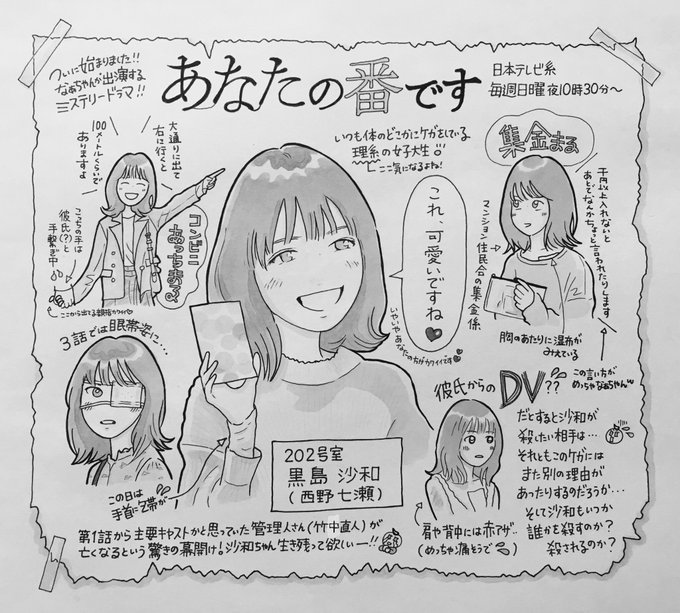 ついに始まりました!!
なぁちゃんが出演する
ミステリードラマ!!
あなたの番です
日本テレビ系
毎週日曜夜10時30分〜
大通りに出て
右に行くと
100メートルくらいで
ありますよ
コンビニ
あっちまる
こっちの手は
彼氏(?)と
手繋ぎ中
いつも体のどこかにケガをしている
理系の女子大生
ここ気になるよね!
これ、可愛いですね♥
いやいやあなたの方がカワイイです
集金まる
マンション住民会の集金係
千円以上入れないと
あとで、なんかちょっと言われたりします
胸のあたりに瀑布が
みえている
この言い方が
めっちゃなぁちゃん
3話では眼帯姿に…
この日は
手首に包帯が
202号室
黒島 沙和
(西野七瀬)
彼氏からの
DV??
肩や背中には赤アザ…
(めっちゃ痛そうで)
だとすると沙和が
殺したい相手は…
それともこのケガには
また別の理由が
あったりするのだろうか…
そして沙和もいつか
誰かを殺すのか?
殺されるのか?
第1話から主要キャストかと思っていた管理人さん(竹中直人)が
亡くなるという驚きの幕開け!沙和ちゃん生き残って欲しぃー!!